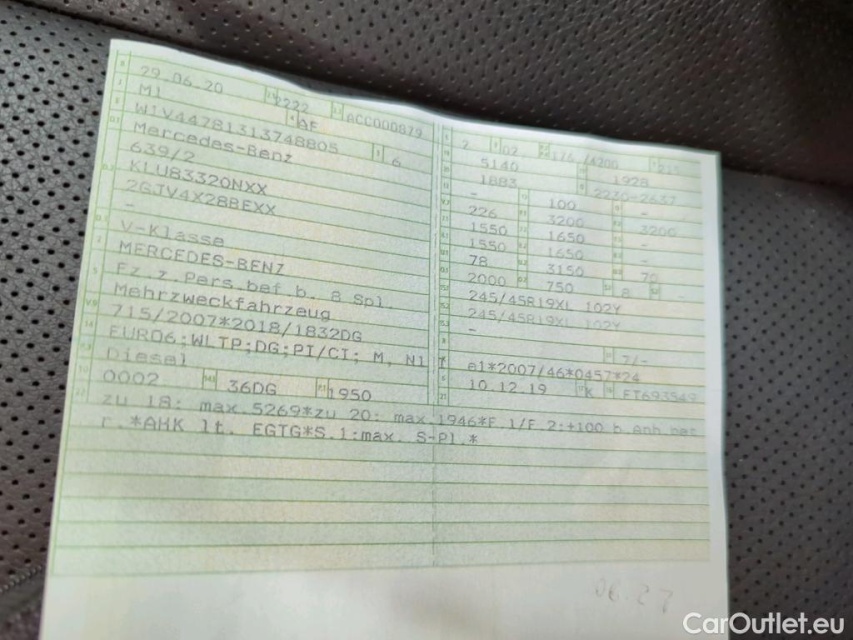 29.06.20 2222 ACC000879
M1 AF
W1V44781313748805 6
Mercedes-Benz
639/2
KLU83320NXX
2GJV4X28BEXX
-
V-Klasse
MERCEDES-BENZ
Fz.z.Pers.bef.b. 8 Spl
Mehrzweckfahrzeug
715/2007*2018/1832DG
EURO6;WLTP;DG;PI/CI; M, N1 I
Diesel
0002 36DG 1950
2 02 176 /4200
5140 1928
1883 2230-2637
- 100 -
226 3200 3200
1550 1650 -
1550 1650 -
78 3150 70
2000 750 8 -
245/45R19XL 102Y
245/45R19XL 102Y
-
7/-
e1*2007/46*0457*24
10.12.19 K FT693549
zu 18: max.5269*zu 20: max.1946*F.1/F.2:+100 b.Anh.bet
r.*AHK lt. EGTG*S.1:max. S-Pl.*
06.27
CarOutlet.eu